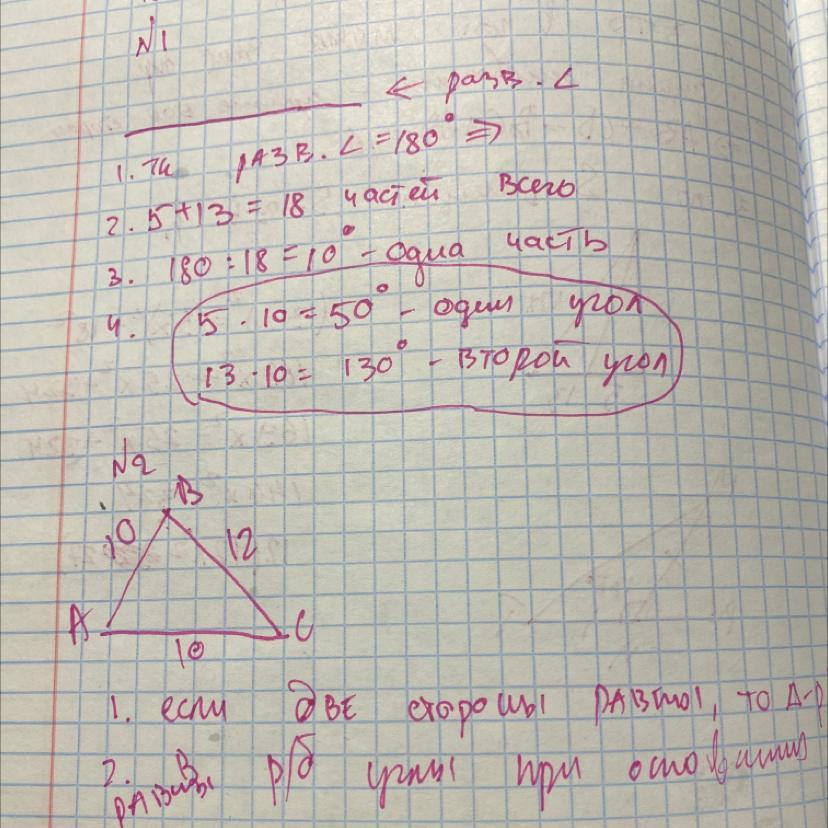 N1
← разв. ∠
1. тк разв. ∠ = 180° ⇒
2. 5+13 = 18 частей всего
3. 180 : 18 = 10° - одна часть
4. 5 · 10 = 50° - один угол
13 · 10 = 130° - второй угол
N2
B
10 12
A C
10
1. если две стороны равны, то Δ-р
2. В р/б углы при основании
равны